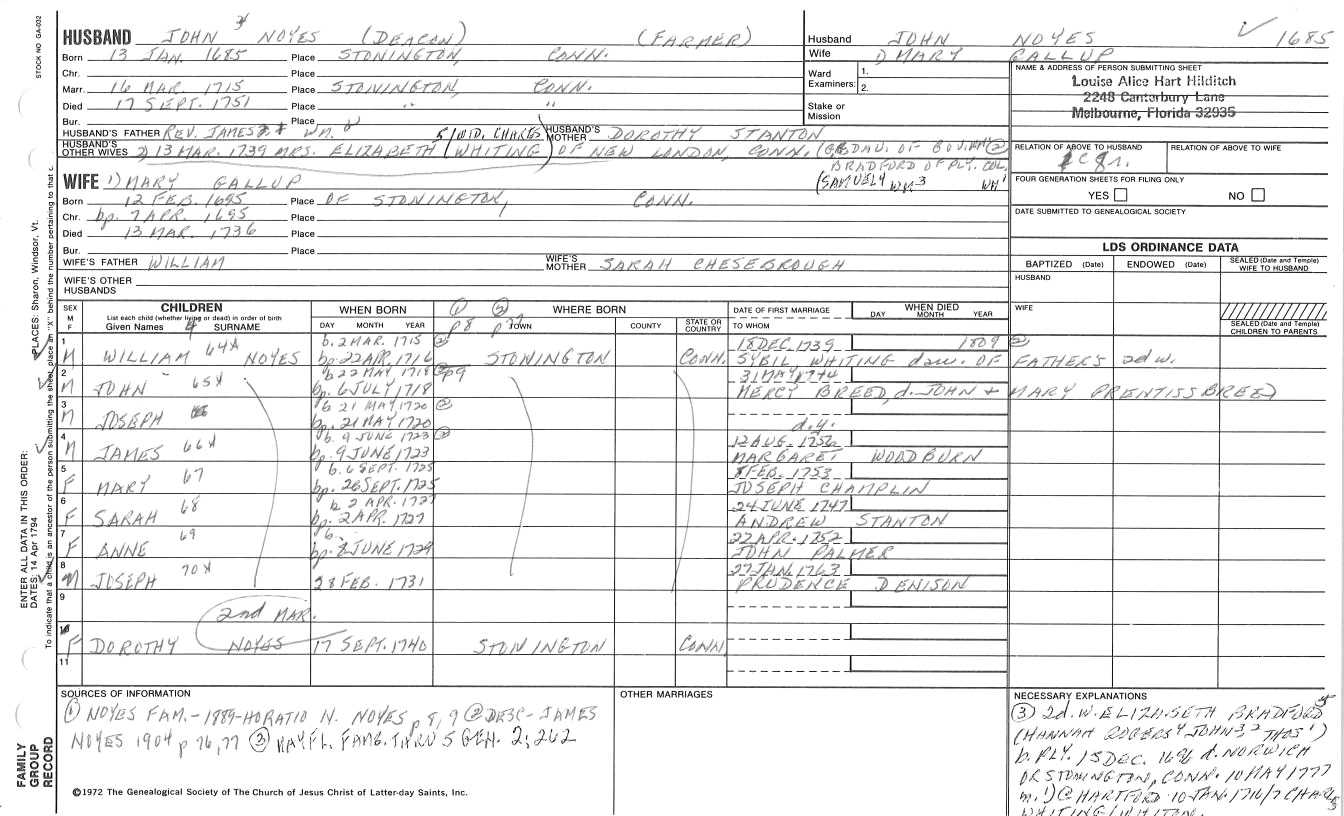 STOCK NO GA-032
PLACES: Sharon, Windsor, Vt.
ENTER ALL DATA IN THIS ORDER:
DATES: 14 Apr 1794
To indicate that a child is an ancestor of the person submitting the sheet, place an "X" behind the number pertaining to that c
FAMILY GROUP RECORD
HUSBAND JOHN NOYES (DEACON) (FARMER)
Born 13 JAN. 1685 Place STONINGTON, CONN.
Chr. Place
Marr. 16 MAR. 1715 Place STONINGTON, CONN.
Died 17 SEPT. 1751 Place " "
Bur. Place
HUSBAND'S FATHER REV. JAMES HUSBAND'S MOTHER DOROTHY STANTON
WID. CHARES
HUSBAND'S OTHER WIVES 2) 13 MAR. 1739 MRS. ELIZABETH (WHITING) OF NEW LONDON, CONN. (GR DAU. OF GOV. WM
BRADFORD OF PLY. COL.
(SAMUEL WM 3 WM 1
WIFE 1) MARY GALLUP
Born 12 FEB. 1695 Place OF STONINGTON, CONN.
Chr. bp. 7 APR. 1695 Place
Died 13 MAR. 1736 Place
Bur. Place
WIFE'S FATHER WILLIAM WIFE'S MOTHER SARAH CHESEBROUGH
WIFE'S OTHER HUSBANDS
Husband JOHN NOYES 1685
Wife MARY GALLUP
Ward Examiners: 1. 2.
Stake or Mission
NAME & ADDRESS OF PERSON SUBMITTING SHEET
Louise Alice Hart Hilditch
2248 Canterbury Lane
Melbourne, Florida 32935
RELATION OF ABOVE TO HUSBAND RELATION OF ABOVE TO WIFE
FOUR GENERATION SHEETS FOR FILING ONLY
YES NO
DATE SUBMITTED TO GENEALOGICAL SOCIETY
LDS ORDINANCE DATA
BAPTIZED (Date) ENDOWED (Date) SEALED (Date and Temple) WIFE TO HUSBAND
HUSBAND
WIFE
SEALED (Date and Temple) CHILDREN TO PARENTS
SEX M F CHILDREN WHEN BORN WHERE BORN DATE OF FIRST MARRIAGE WHEN DIED
List each child (whether living or dead) in order of birth
Given Names SURNAME DAY MONTH YEAR TOWN COUNTY STATE OR COUNTRY TO WHOM DAY MONTH YEAR
1 b. 2 MAR. 1715 18 DEC. 1739 1809
M WILLIAM 64X NOYES bp. 22 APR. 1716 STONINGTON CONN. SYBIL WHITING dau. OF FATHER'S 2d W.
2 b 22 MAY 1718 p9 31 MAY 1744
M JOHN 65X bp. 6 JULY 1718 MERCY BREED, d. JOHN + MARY PRENTISS BREED
3 b 21 MAY 1720
M JOSEPH bp. 21 MAY 1720 d.y.
4 b. 9 JUNE 1723 12 AUG. 1756
M JAMES 66X bp. 9 JUNE 1723 MARGARET WOODBURN
5 b. 6 SEPT. 1725 8 FEB. 1753
F MARY 67 bp. 26 SEPT. 1725 JOSEPH CHAMPLIN
6 b. 2 APR. 1727 24 JUNE 1747
F SARAH 68 bp. 2 APR. 1727 ANDREW STANTON
7 b. 22 APR. 1752
F ANNE 69 bp. 8 JUNE 1729 JOHN PALMER
8 27 JAN. 1763
M JOSEPH 70X 28 FEB. 1731 PRUDENCE DENISON
9 2nd MAR.
10 F DOROTHY NOYES 17 SEPT. 1740 STONINGTON CONN.
11
SOURCES OF INFORMATION
① NOYES FAM. - 1889 - HORATIO N. NOYES p 8, 9 ② DESC - JAMES
NOYES 1904 p 76, 77 ③ MAYFL. FAMS. THRU 5 GEN. 2; 262
OTHER MARRIAGES
NECESSARY EXPLANATIONS
③ 2d. W. ELIZABETH BRADFORD
(HANNAH ROGERS 4 JOHN 3, 2 THOS 1)
b. PLY. 15 DEC. 1696 d. NORWICH
OR STONINGTON, CONN. 10 MAY 1777
m. 1) @ HARTFORD 10 JAN. 1716/7 CHARLES
WHITING/WHITON.
©1972 The Genealogical Society of The Church of Jesus Christ of Latter-day Saints, Inc.